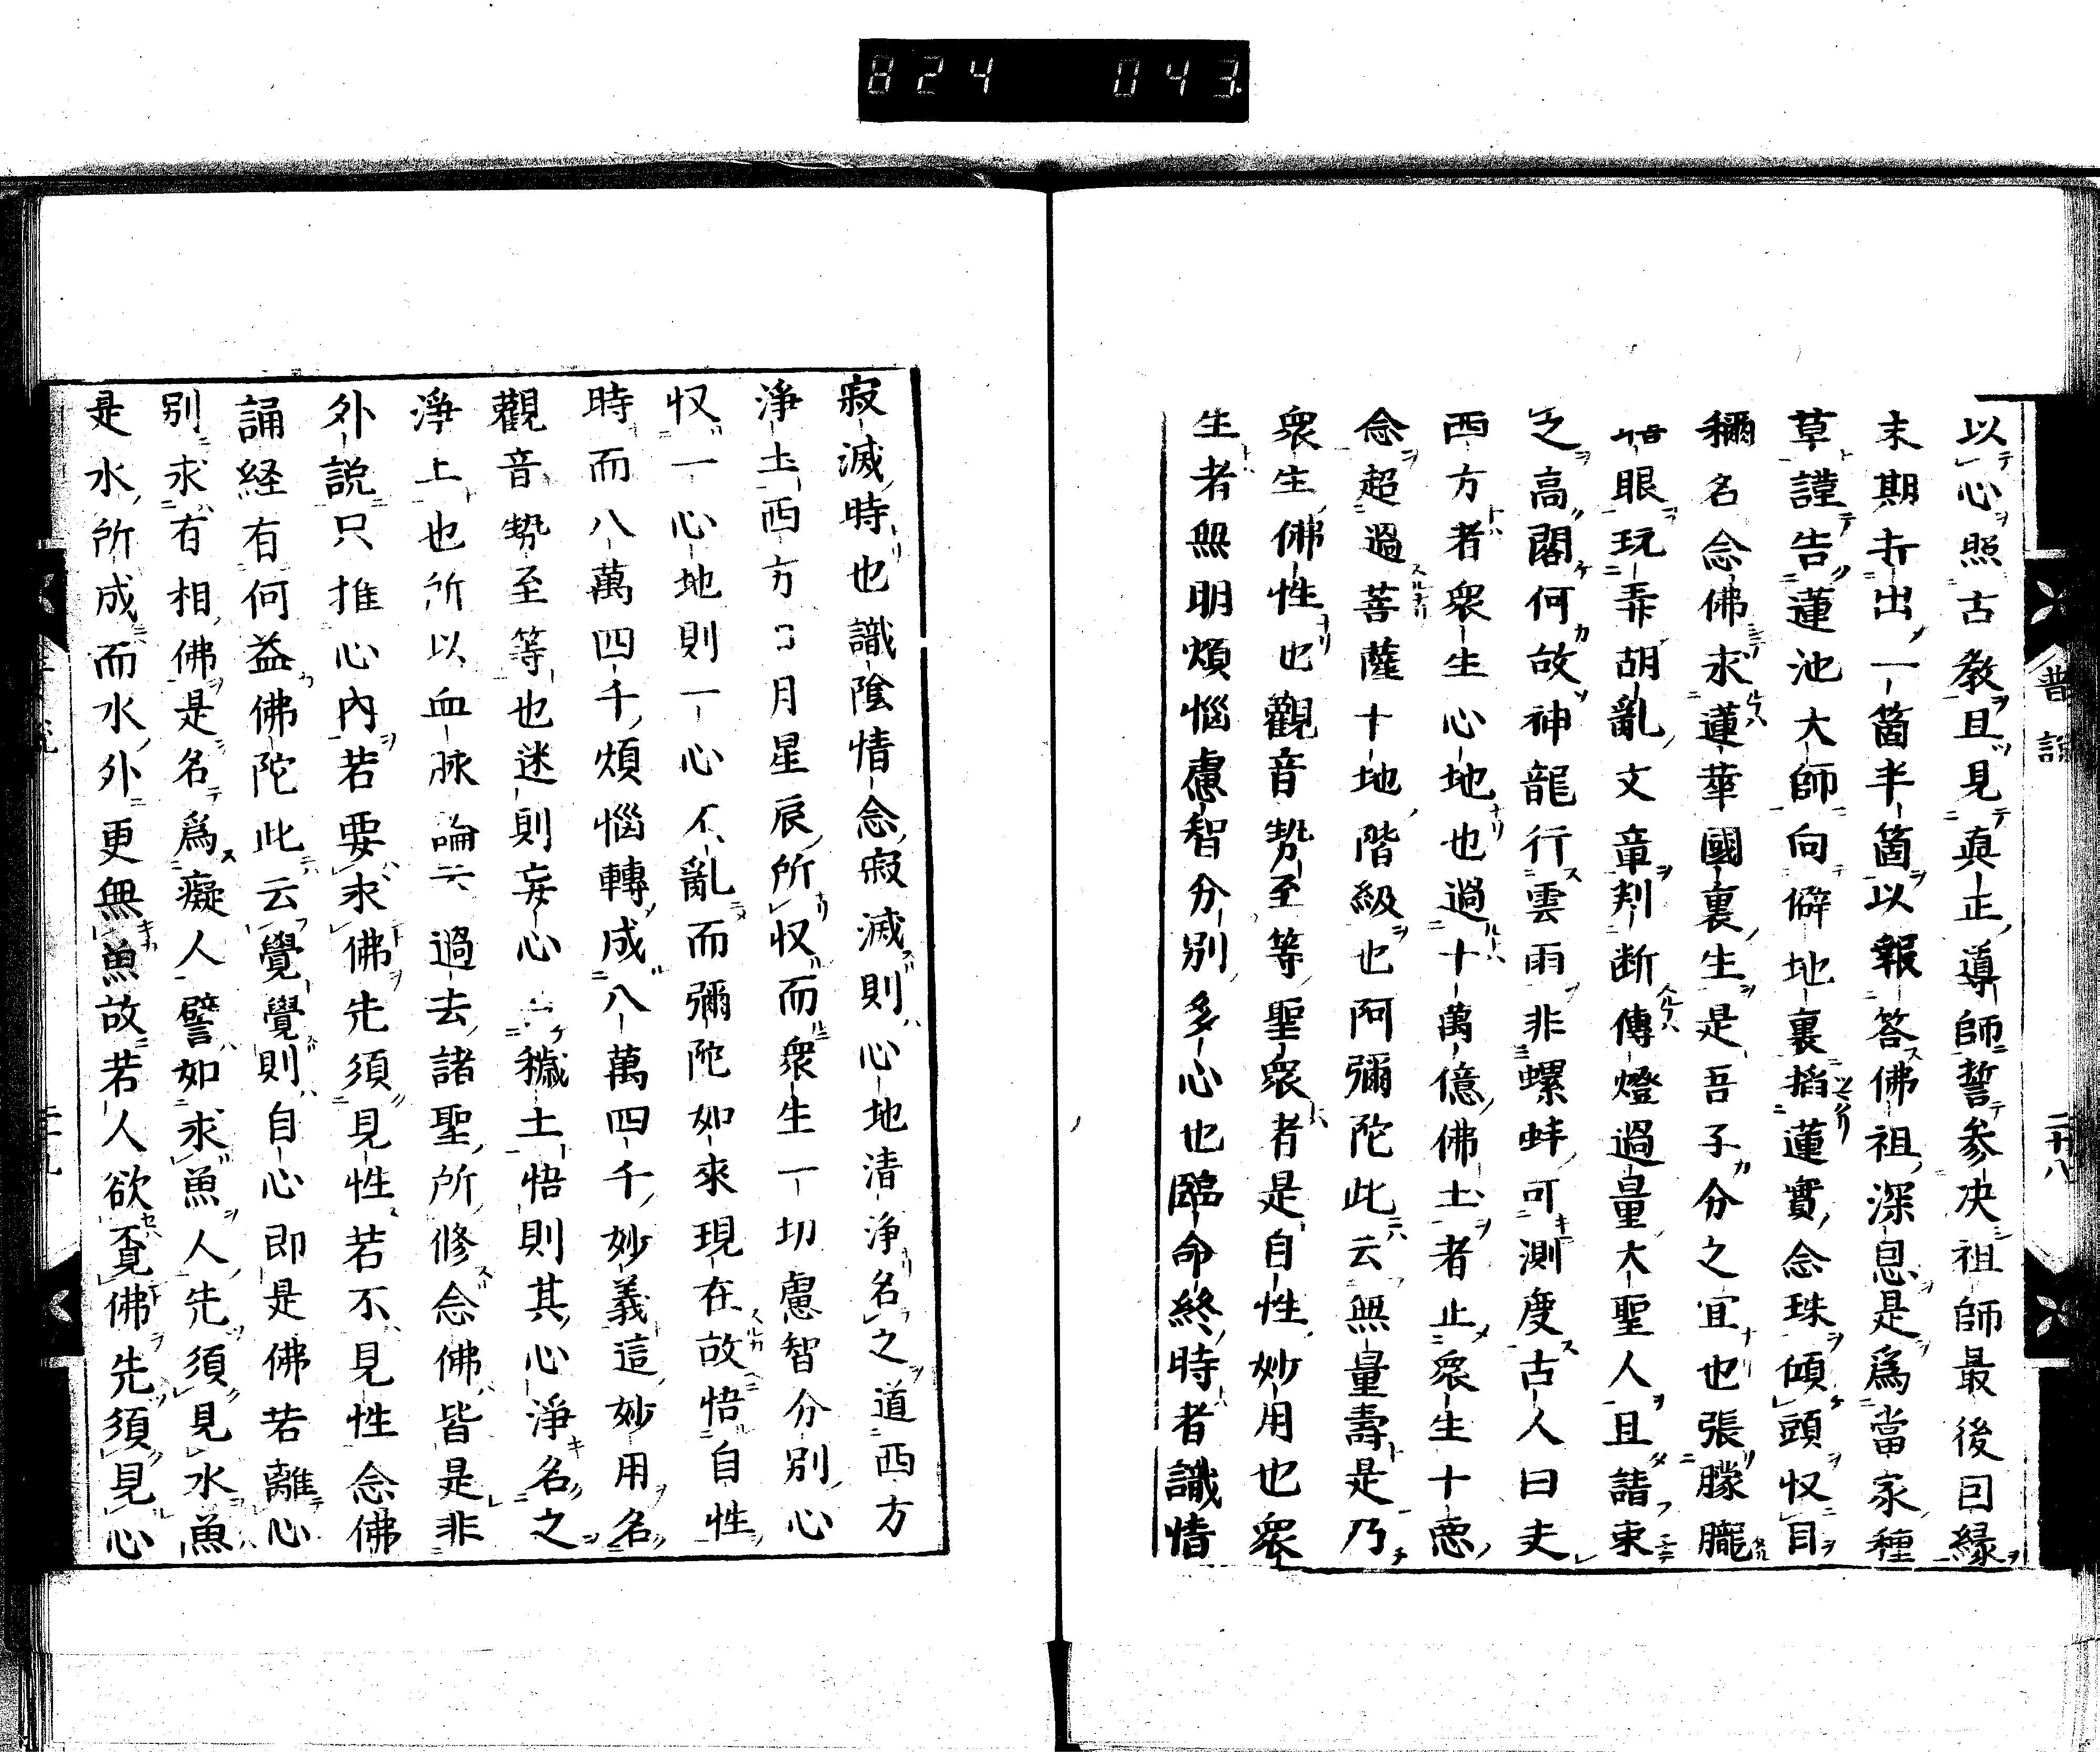 824 043
普説
二十八
以心照古教且見真正導師誓参决祖師最後因縁
末期打出一箇半箇以報答佛祖深恩是爲當家種
草謹告蓮池大師向僻地裏搯蓮實念珠傾頭収目
稱名念佛求蓮華國裏生是吾子分之宜也張朦朧
眼玩弄胡亂文章判断傳燈過量大聖人且請東
之高閣何故神龍行雲雨非螺蚌可測度古人曰夫
西方者衆生心地也過十萬億佛土者止衆生十悪
念超過菩薩十地階級也阿彌陀此云無量壽是乃
衆生佛性也觀音勢至等聖衆者是自性妙用也衆
生者無明煩惱慮智分別多心也臨命終時者識情
寂滅時也識陰情念寂滅則心地清浄名之道西方
浄土西方日月星辰所収而衆生一切慮智分別心
収一心地則一心不亂而彌陀如來現在故悟自性
時而八萬四千煩惱轉成八萬四千妙義這妙用名
觀音勢至等也迷則妄心穢土悟則其心浄名之
浄土也所以血脉論云過去諸聖所修念佛皆是非
外説只推心内若要求佛先須見性若不見性念佛
誦経有何益佛陀此云覺覺則自心即是佛若離心
別求有相佛是名爲癡人譬如求魚人先須見水魚
是水所成而水外更無魚故若人欲覔佛先須見心